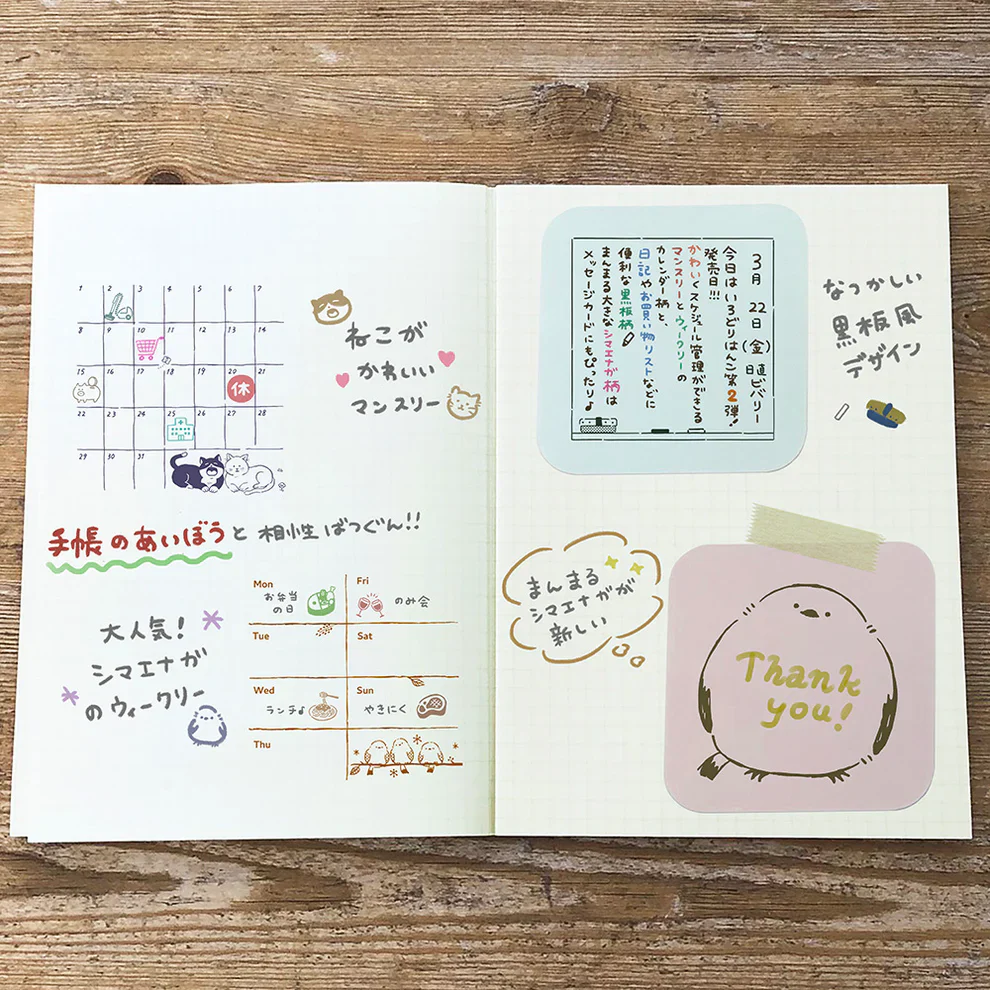 1 2 3 4 5 6 7
8 9 10 11 12 13 14
15 16 17 18 19 20 21
休
22 23 24 25 26 27 28
29 30 31
ねこが
かわいい
マンスリー
手帳のあいぼうと相性ばつぐん!!
大人気!
シマエナガ
のウィークリー
Mon
お弁当
の日
Fri
のみ会
Tue
Sat
Wed
ランチ♪
Sun
やきにく
Thu
3月 22日(金) 日直ビバリー
今日はいろどりはん第2弾!
発売日!!!
かわいくスケジュール管理ができる
マンスリーとウィークリーの
カレンダー柄と、
日記やお買い物リストなどに
便利な黒板柄
まんまる大きなシマエナガ柄は
メッセージカードにもぴったり♪
なつかしい
黒板風
デザイン
まんまる
シマエナガが
新しい
Thank
you!